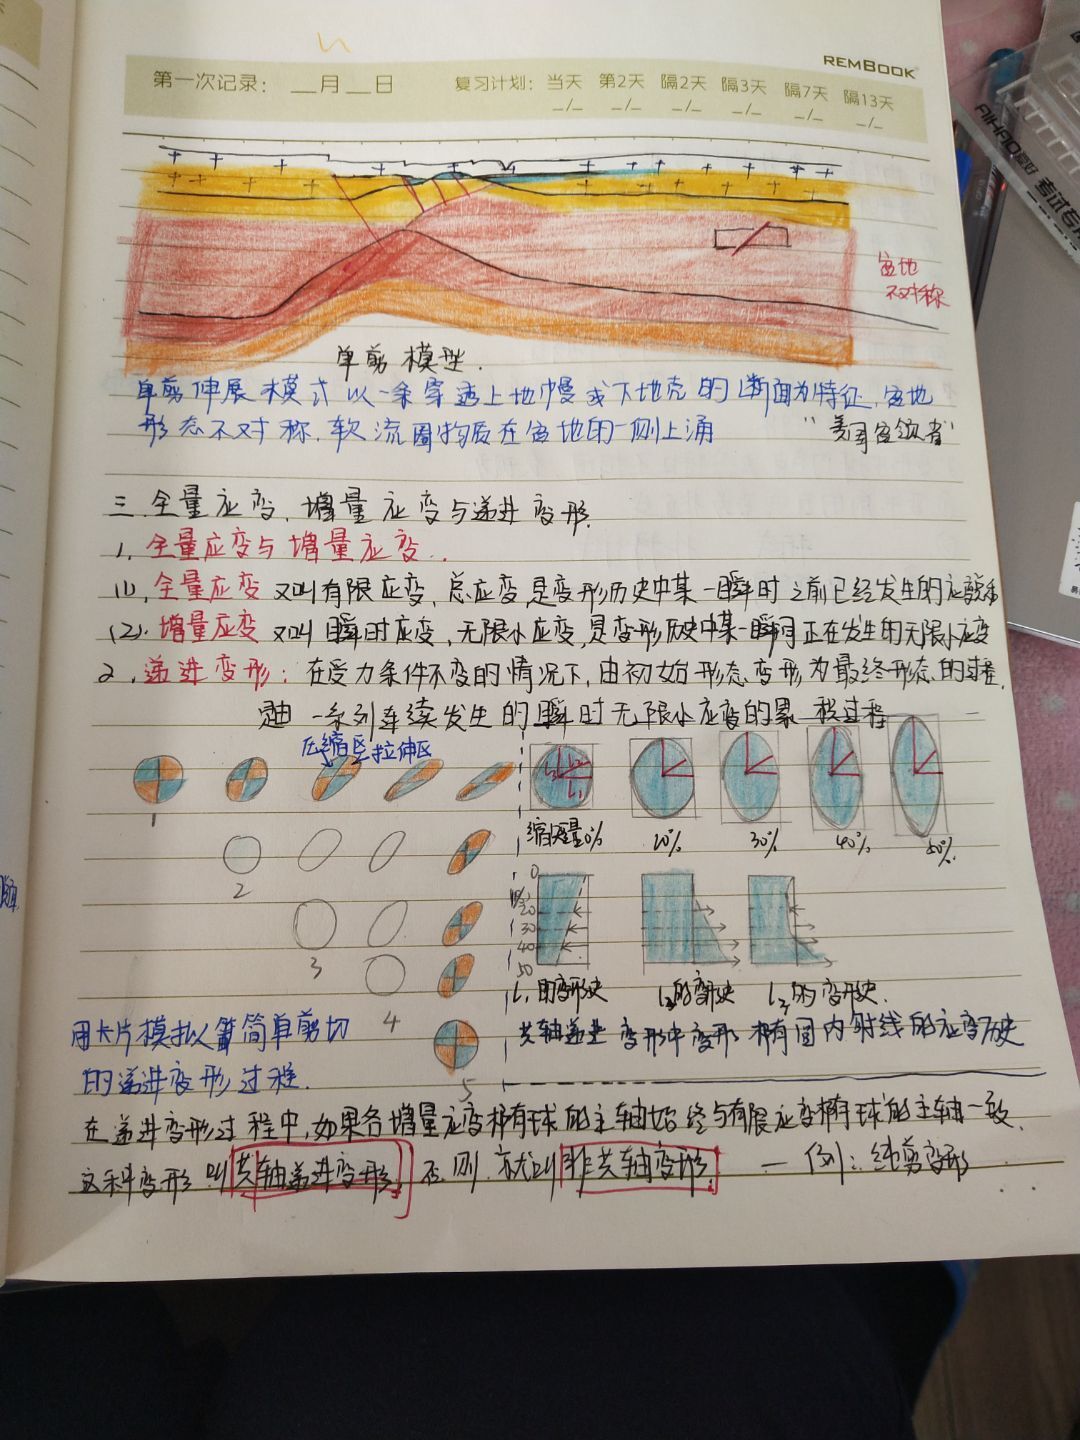 REMBOOK
第一次记录: __月__日 复习计划: 当天 第2天 隔2天 隔3天 隔7天 隔13天
_/_ _/_ _/_ _/_ _/_ _/_
盆地
不对称
单剪模型.
单剪伸展模式以一条穿透上地幔或下地壳的断面为特征,盆地
形态不对称,软流圈物质在盆地的一侧上涌
三.全量应变、增量应变与递进变形.
1.全量应变与增量应变.
(1).全量应变 又叫有限应变,总应变,是变形历史中某一瞬时之前已经发生的应变
(2).增量应变 又叫瞬时应变,无限小应变,是变形历史中某一瞬间正在发生的无限小应变
2.递进变形:在受力条件不变的情况下,由初始形态变形为最终形态的过程,
一系列连续发生的瞬时无限小应变的累积过程
压缩区 拉伸区
1
缩短量0% 20% 30% 40% 50%
2
0
20
30
40
50
3
L₁的变形史 L₂的变形史 L₃的变形史.
4
用卡片模拟简单剪切
的递进变形过程.
共轴递进变形中变形椭圆内射线的应变历史
5
在递进变形过程中,如果各增量应变椭球的主轴始终与有限应变椭球的主轴一致,
这种变形叫共轴递进变形,否则,就叫非共轴变形. — 例:纯剪变形
AIHAO 考试专